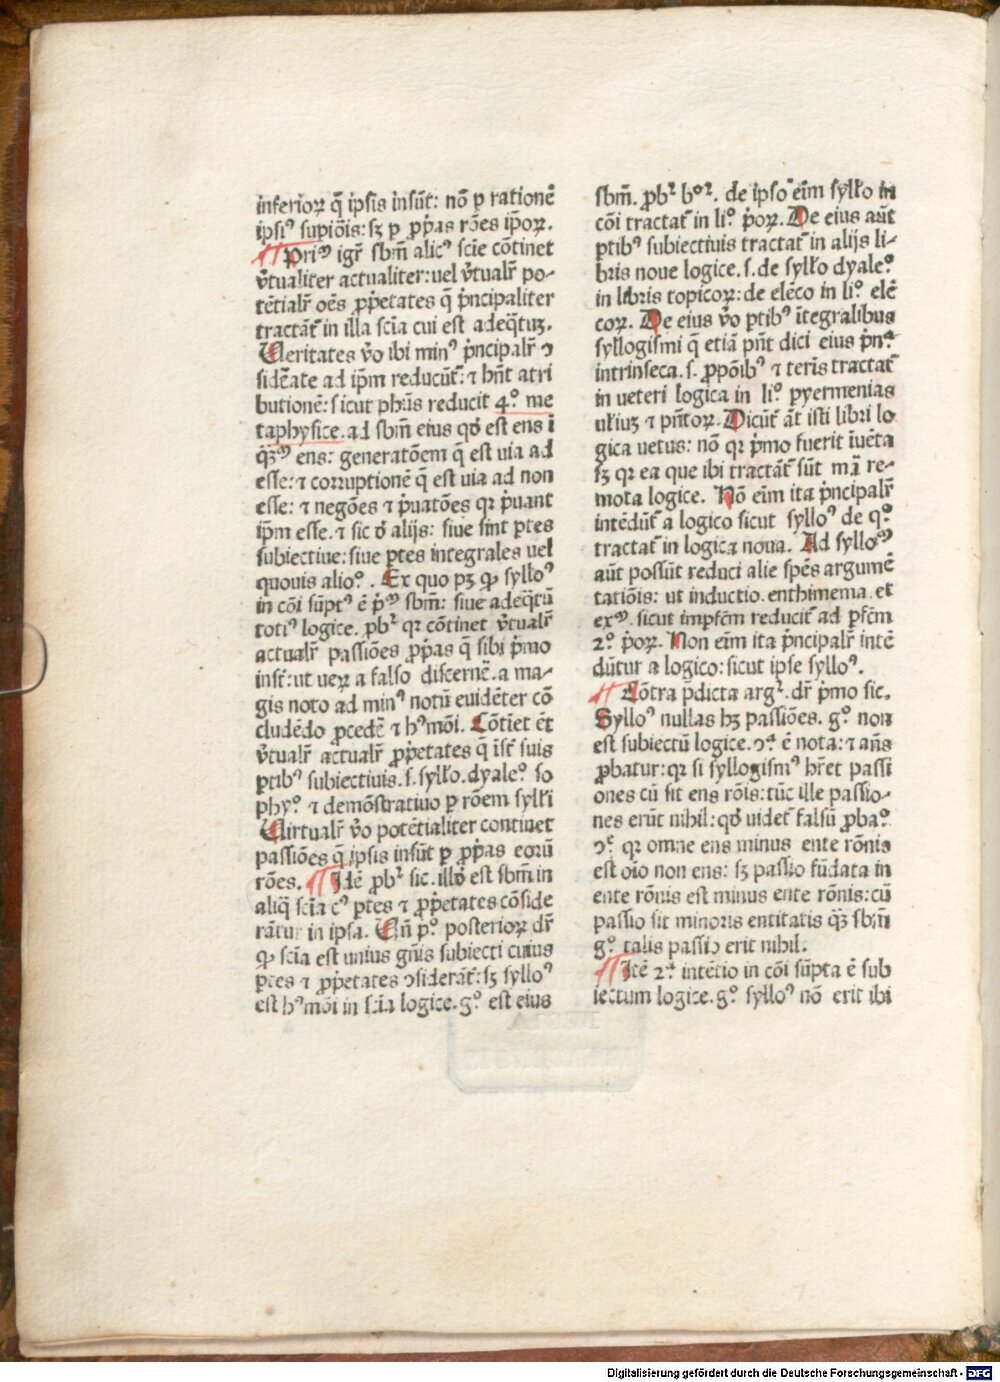 inferioꝝ q̄ ip̄sis insūt: nō ꝑ rationē
ip̄siꝰ supiōis: sꝫ ꝑ ꝓp̄as rōes ip̄oꝝ.
¶ Pri° igr̄ sbm̄ alicꝰ scie cōtinet
v̄tualiter actualiter: uel v̄tualr̄ po-
tētialr̄ oēs ꝓp̄etates q̄ p̄ncipaliter
tractāt̄ in illa scīa cui est adeq̄tuꝫ.
Veritates v̄o ibi minꝰ p̄ncipalr̄ ꝯ
sidērate ad ip̄m reducūt̄: ⁊ hn̄t atri
butionē: sicut ph̄us reducit 4.° me
taphysice. ad sbm̄ eius qđ est ens ī
q̄ꝫ° ens: generatōem q̄ est uia ad
esse: ⁊ corruptionē q̄ est uia ad non
esse: ⁊ negōes ⁊ p̄uatōes qꝛ p̄uant
ip̄m esse. ⁊ sic đ alijs: siue sint ꝑtes
subiectiue: siue ꝑtes integrales uel
quouis alio°. Ex quo pꝫ ꝙ sylłoꝰ
in cōi sūptꝰ ē p̄° sbm̄: siue adeq̄tū
totiꝰ logice. ꝓbꝛ qꝛ cōtinet v̄tualr̄
actualr̄ passiōes ꝓp̄as q̄ sibi p̄mo
inst̄: ut ueꝝ a falso discernē. a ma-
gis noto ad minꝰ notū euidēter cō
cludēdo ꝓcedē ⁊ hꝰmōi. Cōtiet ēt
v̄tualr̄ actualr̄ ꝓp̄etates q̄ īst̄ suis
ꝑtibꝰ subiectiuis. s. sylło. dyale° so
phy° ⁊ demōstratiuo ꝑ rōem syłłi
Virtualr̄ v̄o potētialiter continet
passiōes q̄ ip̄sis insūt ꝑ ꝓp̄as eorū
rōes. ¶ Idē ꝓbꝛ sic. illđ est sbm̄ in
aliq̄ scīa cꝰ ꝑtes ⁊ ꝓp̄etates cōside
rātur in ipsa. Vn̄ p° posterioꝝ dr̄
ꝙ scīa est unius gn̄is subiecti cuius
ptes ⁊ ꝓp̄etates ꝯsiderāt̄: sꝫ sylloꝰ
est hꝰmōi in scīa logice. g° est eius
sbm̄. ꝓbꝛ b°ꝛ. de ipso eīm syłło in
cōi tractat̄ in li° p̄oꝝ. De eius aūt
ꝑtibꝰ subiectiuis tractat̄ in alijs li-
bris noue logice. s. de syłło dyale°
in libris topicoꝝ: de elēco in li° elē
coꝝ. De eius v̄o ꝑtibꝰ ītegralibus
syllogismi q̄ etiā pn̄t dici eius p̄nᵃ
intrinseca. s. ꝓpōibꝰ ⁊ teris̄ tractat̄
in ueteri logica in li° pyermenias
ułiuꝫ ⁊ pn̄toꝝ. Dicūt̄ āt isti libri lo
gica uetus: nō qꝛ p̄mo fuerit īuēta
sꝫ qꝛ ea que ibi tractāt̄ sūt mā re-
mota logice. Nō eīm ita p̄ncipalr̄
intēdūt̄ a logico sicut sylloꝰ de q°
tractat̄ in logica noua. Ad syllo°
aūt possūt reduci alie spēs argumē
tatiōis: ut inductio. enthimema. et
ex°. sicut impfēm reducit̄ ad ꝑfēm
2° p̄oꝝ. Non eīm ita p̄ncipalr̄ intē
dūtur a logico: sicut ipse sylloꝰ.
¶ Cōtra p̄dicta argꝛ. dr̄ p̄mo sic.
Sylloꝰ nullas hꝫ passiōes. g° non
est subiectū logice. ꝯᵃ ē nota: ⁊ an̄s
ꝓbatur: qꝛ si syllogismꝰ hr̄et passi
ones cū sit ens rōis: tūc ille passio-
nes erūt nihil: qđ uidet̄ falsū ꝓba°
ꝯᵉ qꝛ omne ens minus ente rōnis
est oīo non ens: sꝫ passio fūdata in
ente rōnis est minus ente rōnis: cū
passio sit minoris entitatis q̄ꝫ sbm̄
g° talis passio erit nihil.
¶ Itē 2ᵃ intētio in cōi sūpta ē sub
iectum logice. g° sylloꝰ nō erit ibi
Digitalisierung gefördert durch die Deutsche Forschungsgemeinschaft - DFG